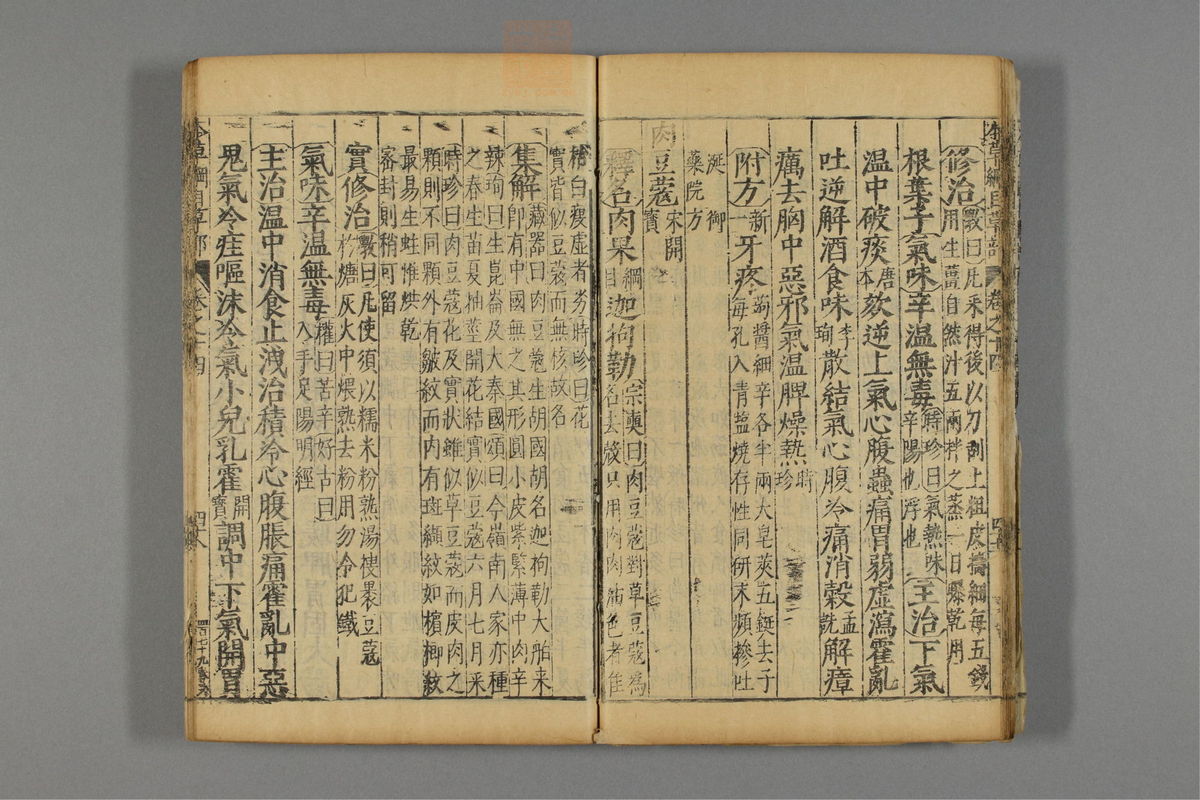 本草綱目草部 卷之十四
修治斅曰凡采得後以刀刮上粗皮擣細每五錢用生薑自然汁五兩拌之蒸一日曝乾用
根葉子氣味辛溫無毒時珍曰氣熱味辛陽也浮也主治下氣
溫中破痰唐本欬逆上氣心腹蟲痛胃弱虛瀉霍亂
吐逆解酒食味李珣散結氣心腹冷痛消穀孟詵解瘴
癘去胸中惡邪氣溫脾燥熱時珍
附方新一牙疼蒟醬細辛各半兩大皂莢五鋌去子每孔入青鹽燒存性同研末頻摻吐
涎御藥院方
肉豆蔻宋開寶
釋名肉果綱目迦拘勒宗奭曰肉豆蔻對草豆蔻為名去殼只用肉肉油色者佳
枯白瘦虛者劣時珍曰花實皆似豆蔻而無核故名
集解藏器曰肉豆蔻生胡國胡名迦拘勒大舶來即有中國無之其形圓小皮紫緊薄中肉辛
辣珣曰生崑崙及大秦國頌曰今嶺南人家亦種之春生苗夏抽莖開花結實似豆蔻六月七月采
時珍曰肉豆蔻花及實狀雖似草豆蔻而皮肉之顆則不同顆外有皺紋而內有斑纈紋如檳榔紋
最易生蛀惟烘乾密封則稍可留
實修治斅曰凡使須以糯米粉熟湯搜裹豆蔻於煻灰火中煨熟去粉用勿令犯鐵
氣味辛溫無毒權曰苦辛好古曰入手足陽明經
主治溫中消食止洩治積冷心腹脹痛霍亂中惡
鬼氣冷疰嘔沫冷氣小兒乳霍開寶調中下氣開胃
本草綱目草部 卷之十四 四六